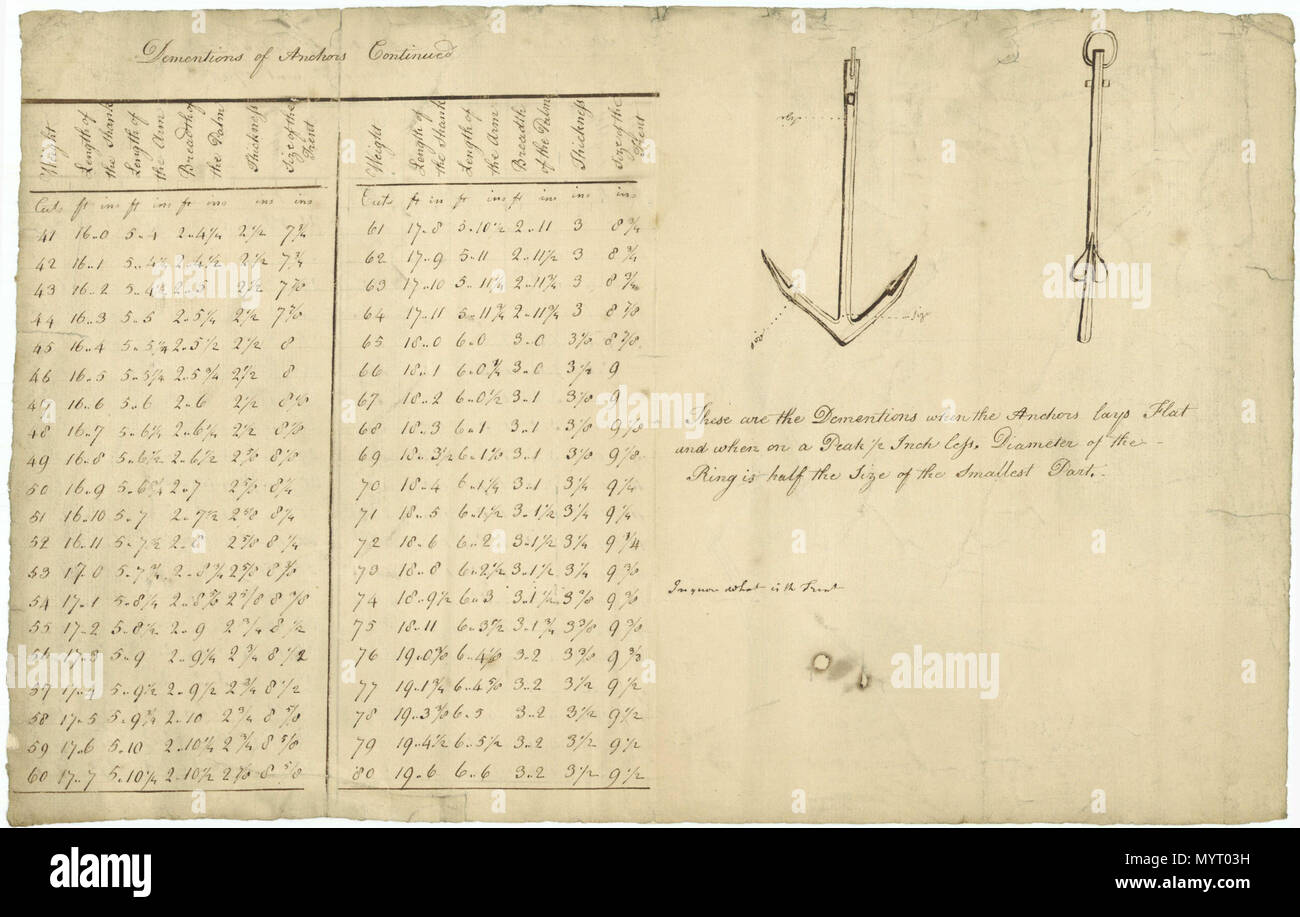 Dementions of Anchors Continued
Weight Length of the Shank Length of the Arm Breadth of the Palm Thickness Size of the Trent
Cwts ft ins ft ins ft ins ins ins
41 16..0 5..4 2..4¼ 2½ 7¾
42 16..1 5..4¼ 2..4½ 2½ 7¾
43 16..2 5..4½ 2..5 2½ 7⅞
44 16..3 5..5 2..5¼ 2½ 7⅞
45 16..4 5..5¼ 2..5½ 2½ 8
46 16..5 5..5¾ 2..5¾ 2½ 8
47 16..6 5..6 2..6 2½ 8⅛
48 16..7 5..6¼ 2..6¼ 2½ 8⅛
49 16..8 5..6½ 2..6½ 2⅝ 8⅛
50 16..9 5..6¾ 2..7 2⅝ 8¼
51 16..10 5..7 2..7½ 2⅝ 8¼
52 16..11 5..7½ 2..8 2⅝ 8¼
53 17..0 5..7¾ 2..8¼ 2⅝ 8⅜
54 17..1 5..8¼ 2..8⅜ 2⅝ 8⅜
55 17..2 5..8½ 2..9 2¾ 8½
56 17..3 5..9 2..9¼ 2¾ 8½
57 17..4 5..9½ 2..9½ 2¾ 8½
58 17..5 5..9¾ 2..10 2¾ 8⅝
59 17..6 5..10 2..10¼ 2¾ 8⅝
60 17..7 5..10¼ 2..10½ 2⅞ 8⅝
Weight Length of the Shank Length of the Arm Breadth of the Palm Thickness Size of the Trent
Cwts ft in ft ins ft ins ins ins
61 17..8 5..10½ 2..11 3 8¾
62 17..9 5..11 2..11 3 8¾
63 17..10 5..11¼ 2..11¼ 3 8¾
64 17..11 5..11¾ 2..11¾ 3 8⅞
65 18..0 6..0 3..0 3⅛ 8⅞
66 18..1 6..0¼ 3..0 3⅛ 9
67 18..2 6..0½ 3..1 3⅛ 9
68 18..3 6..1 3..1 3⅛ 9⅛
69 18..3½ 6..1⅛ 3..1 3⅛ 9⅛
70 18..4 6..1¼ 3..1 3¼ 9¼
71 18..5 6..1½ 3..1½ 3¼ 9¼
72 18..6 6..2 3..1½ 3¼ 9¼
73 18..8 6..2½ 3..1½ 3¼ 9⅜
74 18..9½ 6..3 3..1½ 3⅜ 9⅜
75 18..11 6..3½ 3..1¾ 3⅜ 9⅜
76 19..0⅜ 6..4⅛ 3..2 3⅜ 9⅜
77 19..1¾ 6..4⅝ 3..2 3½ 9½
78 19..3⅜ 6..5 3..2 3½ 9½
79 19..4½ 6..5½ 3..2 3½ 9½
80 19..6 6..6 3..2 3½ 9½
These are the Dementions when the Anchors lays Flat
and when on a Peak ½ Inch less. Diameter of the
Ring is half the Size of the Smallest Part.
what is the Trent
alamy
a
alamy
Image ID: MYT03H
www.alamy.com